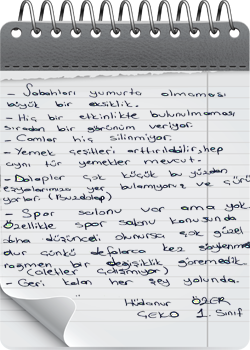 - Sabahları yumurta olmaması
büyük bir eksiklik.
- Hiç bir etkinlikte bulunulmaması
sıradan bir görünüm veriyor.
- Camlar hiç silinmiyor.
- Yemek çeşitleri arttırılabilir, hep
aynı tür yemekler mevcut.
- Dolaplar çok küçük bu yüzden
eşyalarımıza yer bulamıyoruz ve
yorlar. (Buzdolap)
- Spor salonu var ama yok.
Özellikle spor salonu konusunda
daha düşünceli olunursa çok güzel
olur çünkü defalarca kez söylenme
rağmen bir değişiklik göremedik.
(aletler çalışmıyor)
- Geri kalan her şey yolunda.
Hüdanur ÖZER
ÇEKO 1. Sınıf